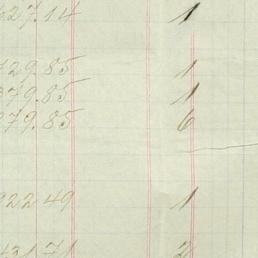 627.14 1
729.85 1
979.85 1
979.85 6
922.49 1
431.71 2